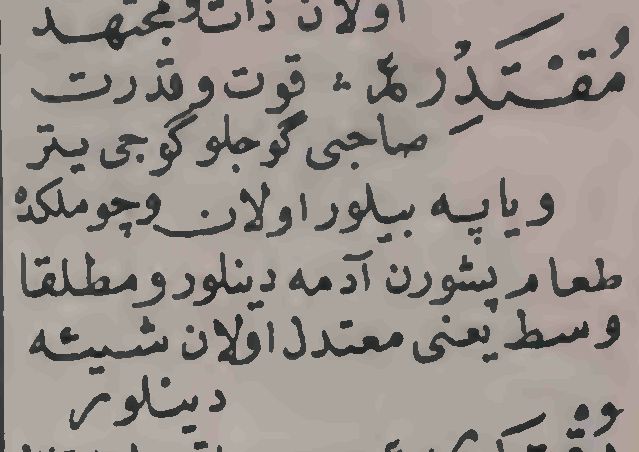 اولان ذات و مجتهد
مُقْتَدِرْ ؏ : قوت و قدرت
صاحبی گوجلو گوجی یتر
و یاپه بیلور اولان وچوملکده
طعام پشورن آدمه دینلور و مطلقا
وسط یعنی معتدل اولان شیئه
دینلور